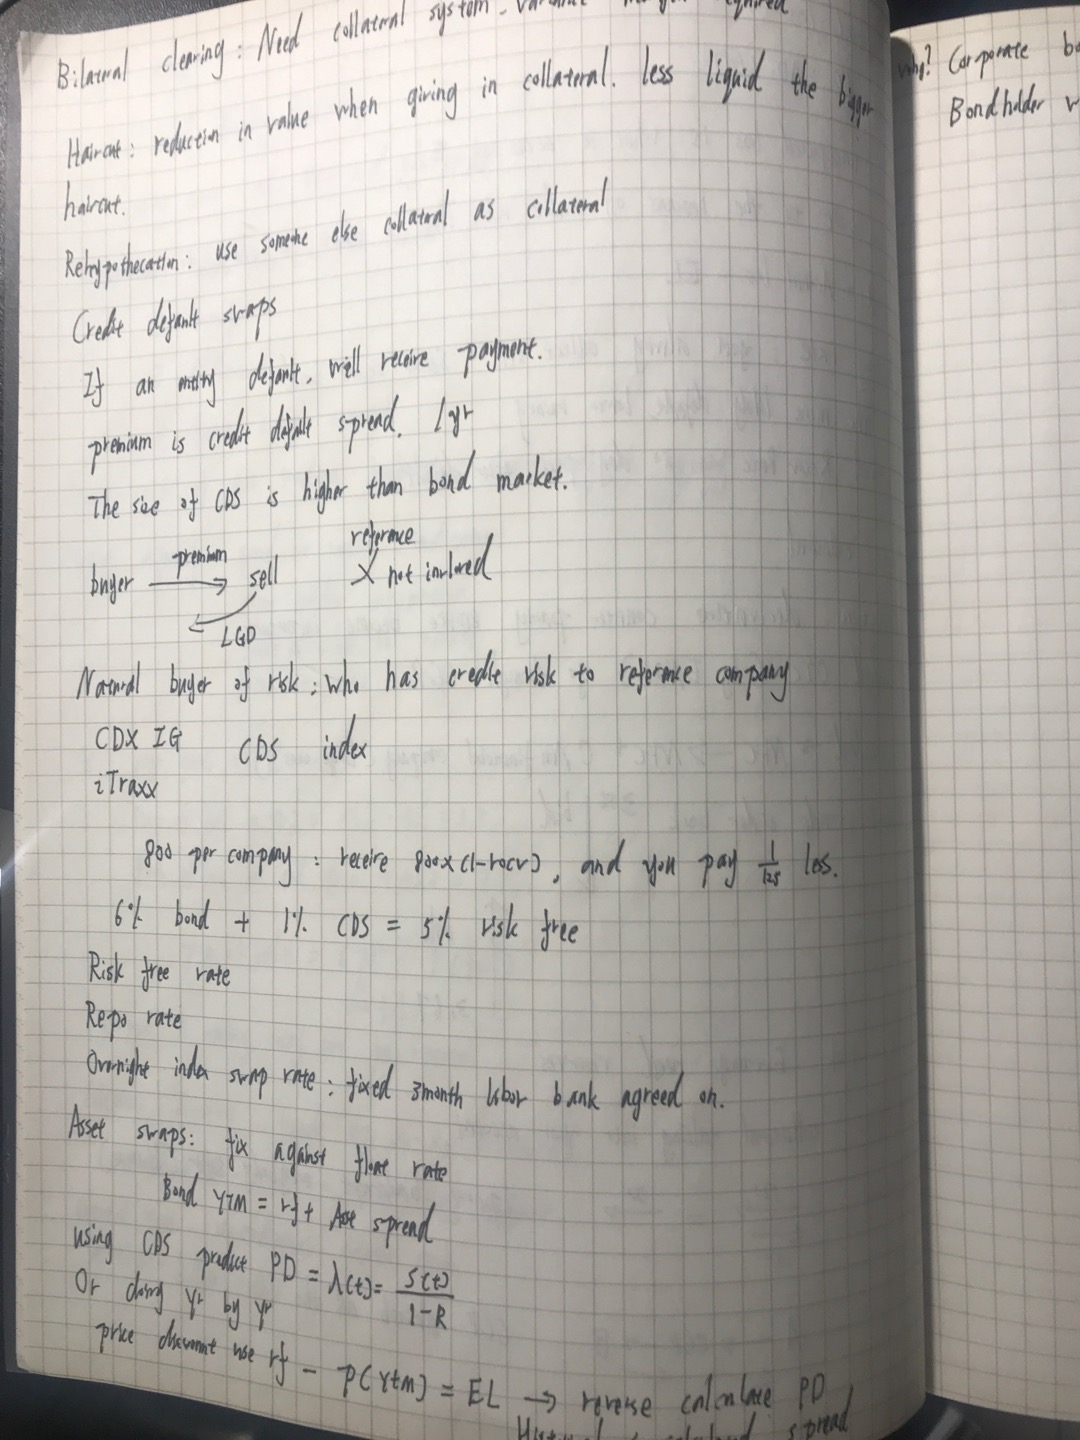 Bilateral clearing: Need collateral system
Haircut: reduction in value when giving in collateral. less liquid the bigger
haircut.
Rehypothecation: use someone else collateral as collateral
Credit default swaps
If an entity default, will receive payment.
premium is credit default spread. 1yr
The size of CDS is higher than bond market.
reference
buyer premium sell X not involved
LGD
Natural buyer of risk: who has credit risk to reference company
CDX IG CDS index
iTraxx
800 per company: receive 800x(1-recv), and you pay 1/125 less.
6% bond + 1% CDS = 5% risk free
Risk free rate
Repo rate
Overnight index swap rate: fixed 3month libor bank agreed on.
Asset swaps: fix against float rate
Bond YTM = rf + Asse spread
using CDS predict PD = λ(t) = s(t)/1-R
Or doing yr by yr
price discount use rf - P(YTM) = EL → reverse calculate PD
spread
why? Corporate
Bondholder